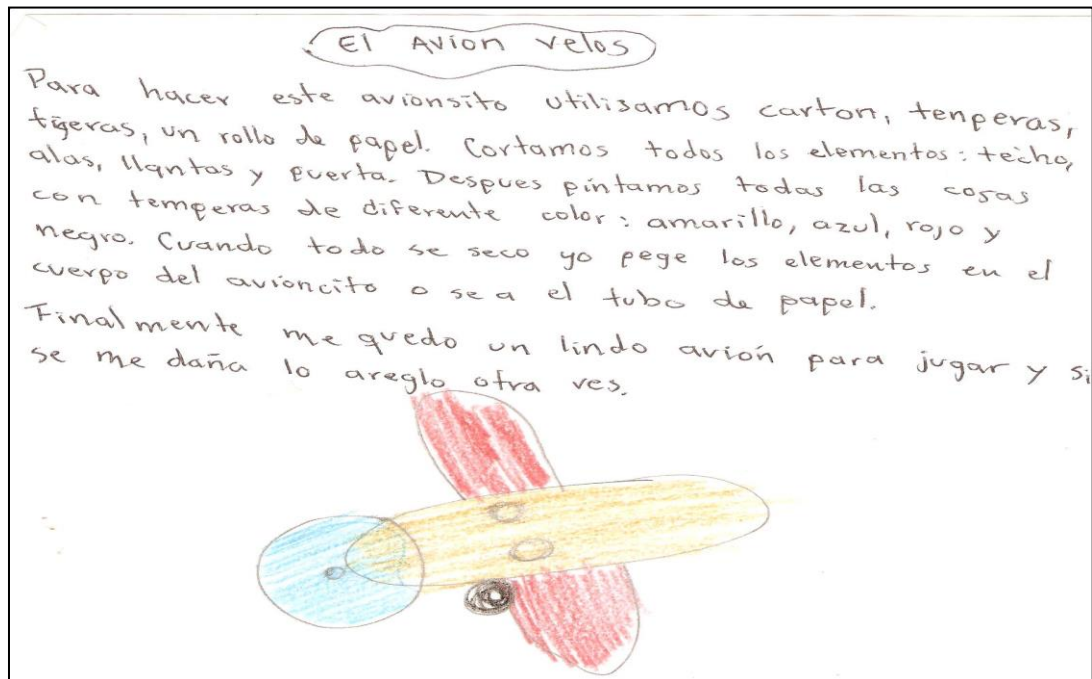 El Avion velos
Para hacer este avionsito utilisamos carton, tenperas,
tigeras, un rollo de papel. Cortamos todos los elementos: techo,
alas, llantas y puerta. Despues pintamos todas las cosas
con temperas de diferente color: amarillo, azul, rojo y
negro. Cuando todo se seco yo pege los elementos en el
cuerpo del avioncito o sea el tubo de papel.
Finalmente me quedo un lindo avión para jugar y si
se me daña lo areglo otra ves.